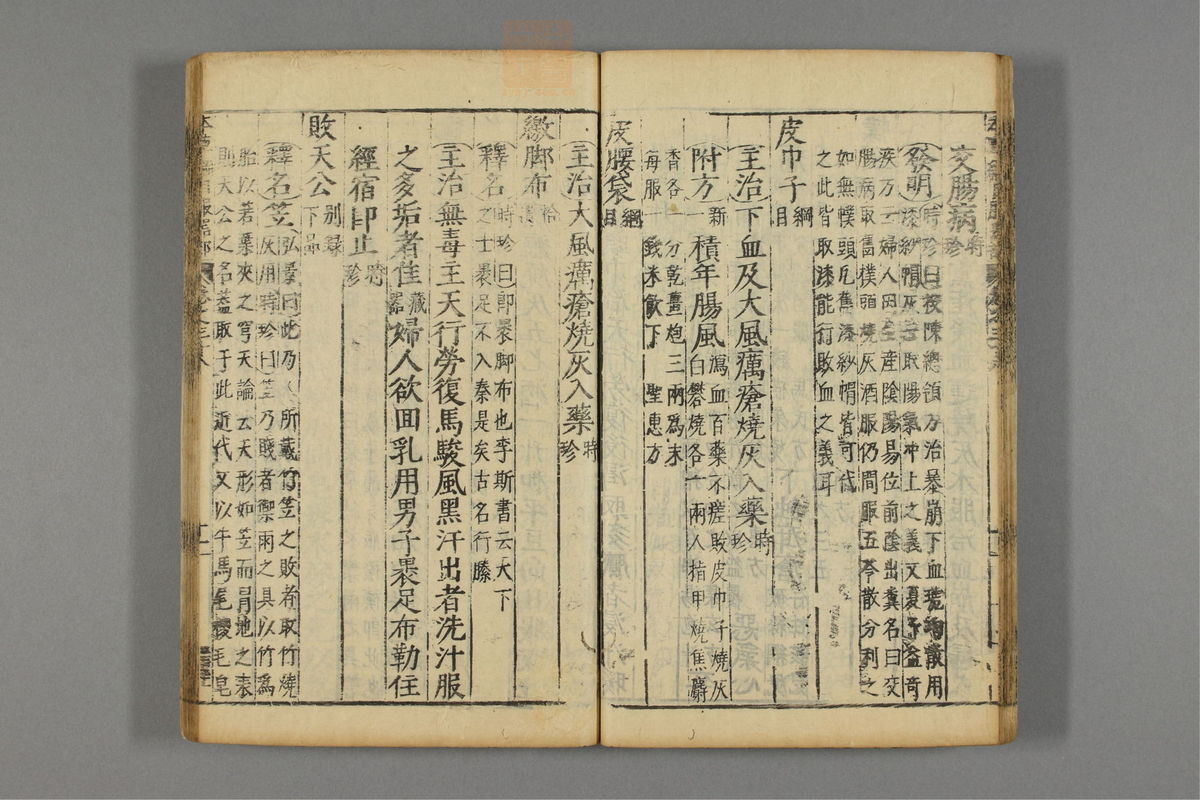 交腸病時珍
發明時珍曰按陳總領方治暴崩下血琥珀散用
漆紗帽灰云取陽氣冲上之義又夏子益奇
疾方云婦人因生產陰陽易位前陰出糞名曰交
腸病取舊幞頭燒灰酒服仍間服五苓散分利之
如無幞頭凡舊漆紗帽皆可代
之此皆取漆能行敗血之義耳
皮巾子綱目
主治下血及大風癘瘡燒灰入藥時珍
附方新一積年腸風瀉血百藥不瘥敗皮巾子燒灰
白礬燒各一兩人指甲燒焦麝
香各一分乾薑炮三兩為末
每服一錢米飲下 聖惠方
皮腰袋綱目
主治大風癘瘡燒灰入藥時珍
繳脚布拾遺
釋名時珍曰即裹脚布也李斯書云天下
之士裹足不入秦是矣古名行縢
主治無毒主天行勞復馬駿風黑汗出者洗汁服
之多垢者佳藏器婦人欲回乳用男子裹足布勒住
經宿即止時珍
敗天公别録下品
釋名笠弘景曰此乃人所戴竹笠之敗者取竹燒
灰用時珍曰笠乃賤者禦雨之具以竹為
胎以箬葉夾之穹天論云天形如笠而冒地之表
則天公之名蓋取于此近代又以牛馬尾椶毛皂